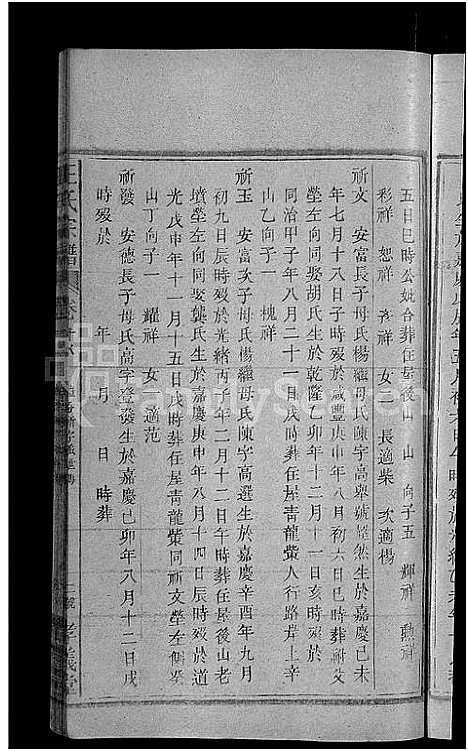 五日巳時公妣合葬在屋後山　山　向子五　輝祥　勲祥
彩祥　恕祥　彥祥　女二　長適柴　次適楊
祈文　安富長子母氏楊繼母氏陳字高舉號悠然生於嘉慶己未
年七月十八日子時歿於咸豐庚申年八月初六日巳時葬祔父
塋左向同娶胡氏生於乾隆乙卯年十二月十一日亥時歿於
同治甲子年八月二十一日戌時葬在屋青龍塋人行路岸上辛
山乙向子一　槐祥
祈玉　安富次子母氏楊繼母氏陳字高選生於嘉慶辛酉年九月
初九日辰時歿於光緒丙子年二月十二日午時葬在屋後山老
墳塋左向同娶龔氏生於嘉慶庚申年八月十四日辰時歿於道
光戊申年十一月十五日戌時葬在屋青龍塋同祈文塋左側癸
山丁向子一　耀祥　女一適范
祈發　安德長子母氏高字登發生於嘉慶己卯年八月十二日戌
時歿於　年　月　日　時葬
王氏宗譜　卷十六
孝義堂